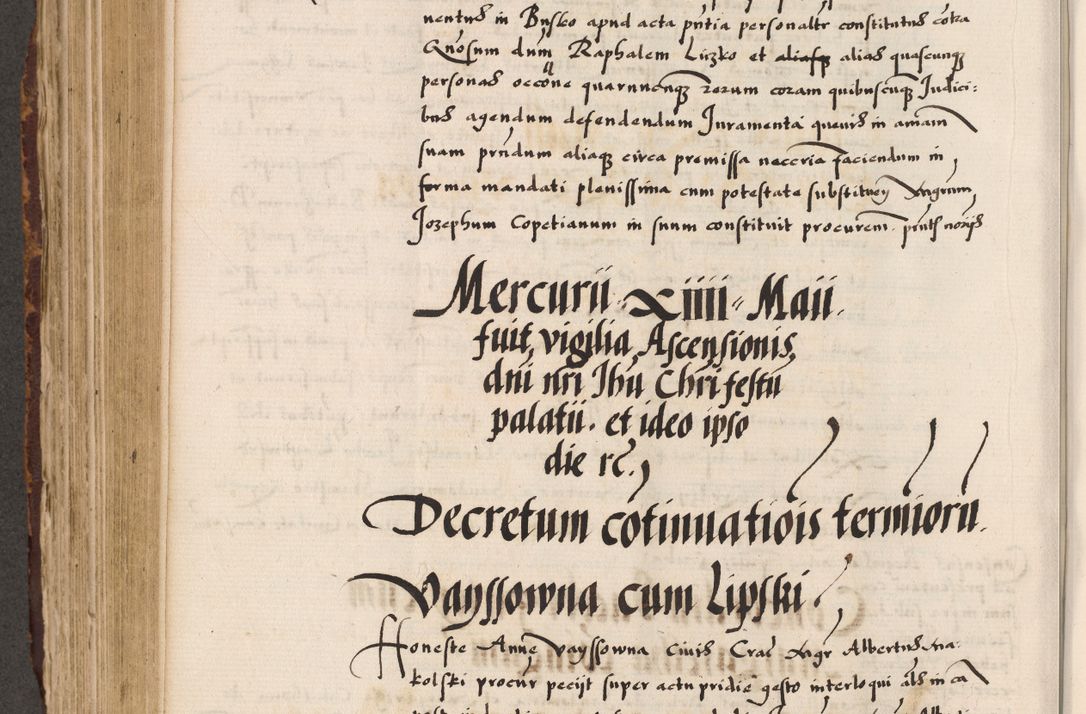 uentus in Busko apud acta pntia personalr constitutus cotra
Qnosum dnm Raphalem Liczko et aliasq alias quascunq
personas occone quarumcunq rerum coram quibuscunq Judici:
bus agendum defendendum Juramenta queuis in amam
suam prndum aliaq circa premissa necceria faciendum in
forma mandati plenissima cum potestate substituen Magrum
Jozephum Copetianum in suum constituit procurem. pntibus noriis
Mercurii Xiiii Maii
fuit vigilia Ascensionis
dni nri Ihu Chri festu
palatii. et ideo ipso
die rc.
Decretum cotinuatiois termioru.
Vayssowna cum Lipski.
Honeste Anne Vayssowna Ciuis Crac Magr Albertus Na
kolski procur pecijt super actu pridie gesto interloqui als in ca